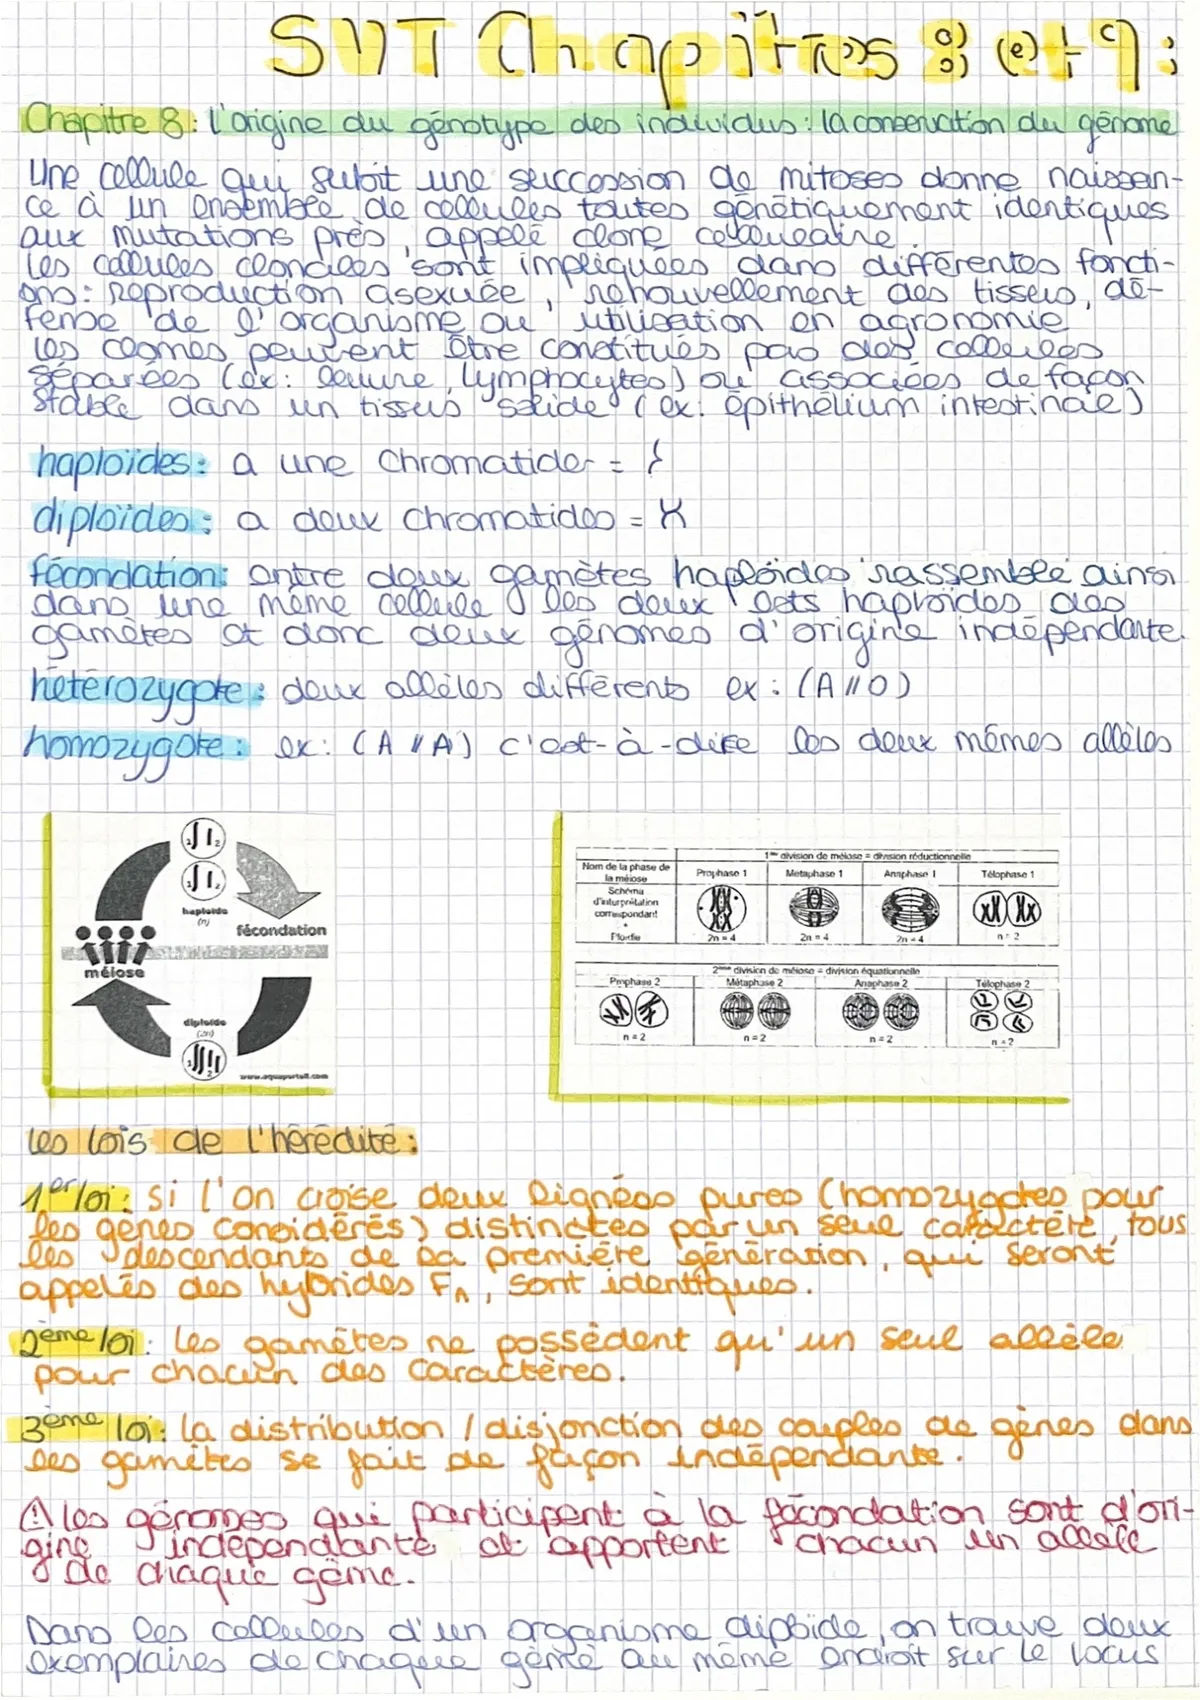 SVT Chapitres 8 et 9 :
Chapitre 8 : l'origine du génotype des individus : la conservation du génome
Une cellule qui subit une succession de mitoses donne naissan-
ce à un ensemble de cellules toutes génétiquement identiques
aux mutations près, appelé clone cellulaire.
Les cellules clonales sont impliquées dans différentes foncti-
ons : reproduction asexuée, renouvellement des tissus, dé-
fense de l'organisme ou utilisation en agronomie
Les peuvent être constitués pas des cellules
séparées (ex: levure, lymphocytes) ou associées de façon
stable dans un tissus solide (ex: épithélium intestinale)
haploïdes : a une chromatide =
diploïdes : a deux chromatides =
fécondation : entre deux gamètes haploïdes rassemble ainsi
dans une même cellule les deux lots haploïdes des
gamètes et donc deux génomes d'origine indépendante.
hétérozygote : deux allèles différents ex : (A//O)
homozygote : ex : (A//A) c'est-à-dire les deux mêmes allèles
haploïde
(n)
fécondation
méiose
diploïde
(2n)
www.aquaportail.com
1ère division de méiose = division réductionnelle
Nom de la phase de la méiose
Prophase 1
Métaphase 1
Anaphase 1
Télophase 1
Schéma d'interprétation correspondant
+
Ploïdie
2n = 4
2n = 4
2n = 4
n = 2
2ème division de méiose = division équationnelle
Prophase 2
Métaphase 2
Anaphase 2
Télophase 2
n = 2
n = 2
n = 2
n = 2
Les lois de l'hérédité :
1er loi : Si l'on croise deux lignées pures (homozygotes pour
les gènes considérés) distinctes par un seul caractère, tous
les descendants de sa première génération, qui seront
appelés des hybrides F1, sont identiques.
2ème loi : Les gamètes ne possèdent qu'un seul allèle
pour chacun des caractères.
3ème loi : la distribution / disjonction des couples de gènes dans
les gamètes se fait de façon indépendante.
⚠ les génomes qui participent à la fécondation sont d'ori-
gine indépendante et apportent chacun un allèle
de chaque gène.
Dans les cellules d'un organisme diploïde, on trouve deux
exemplaires de chaque gène au même endroit sur le locus